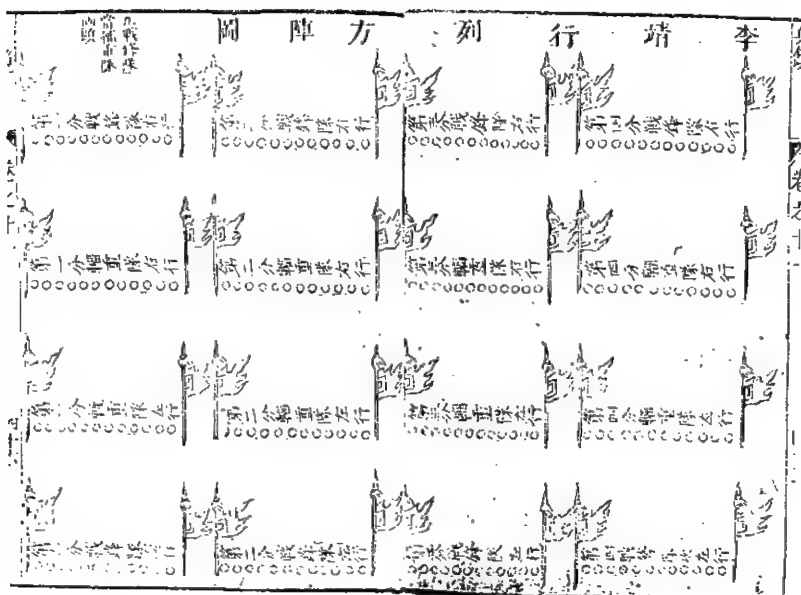 李靖行列方陣圖
第一分戰鋒隊右行
第二分戰鋒隊右行
第三分戰鋒隊右行
第四分戰鋒隊右行
第一分輜重隊右行
第二分輜重隊右行
第三分輜重隊右行
第四分輜重隊右行
第一分輜重隊左行
第二分輜重隊左行
第三分輜重隊左行
第四分輜重隊左行
第一分戰鋒隊左行
第二分戰鋒隊左行
第三分戰鋒隊左行
第四分戰鋒隊左行
卷之十